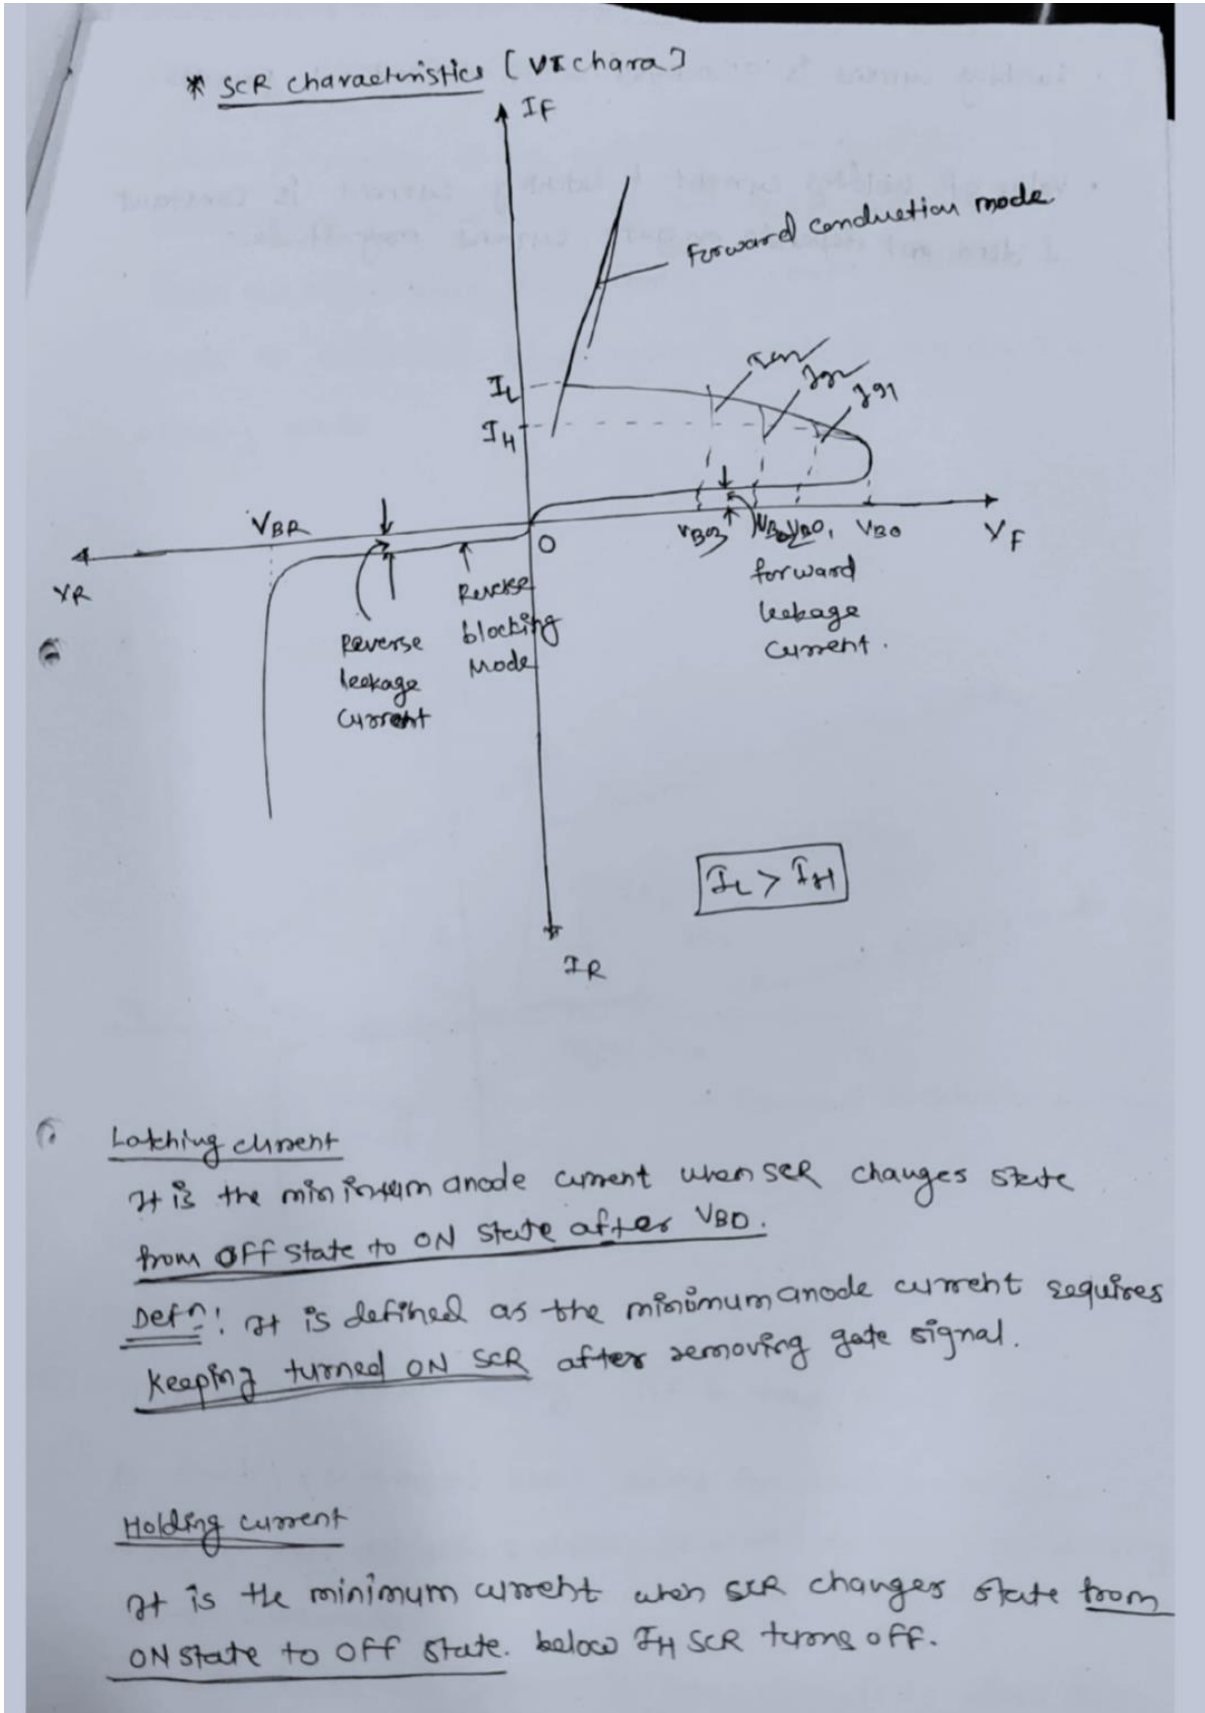 * SCR characteristics [VI chara]
IF
forward conduction mode
IL
Ig2
Ig1
IH
VBR
VR
O
VBO3
VBO1
VBO
VF
Reverse
blocking
Mode
Reverse
leakage
current
forward
leakage
current.
IL > IH
IR
Latching current
It is the minimum anode current when SCR changes state
from OFF state to ON state after VBO.
Defn: It is defined as the minimum anode current requires
keeping turned ON SCR after removing gate signal.
Holding current
It is the minimum current when SCR changes state from
ON state to OFF state. below IH SCR turns off.